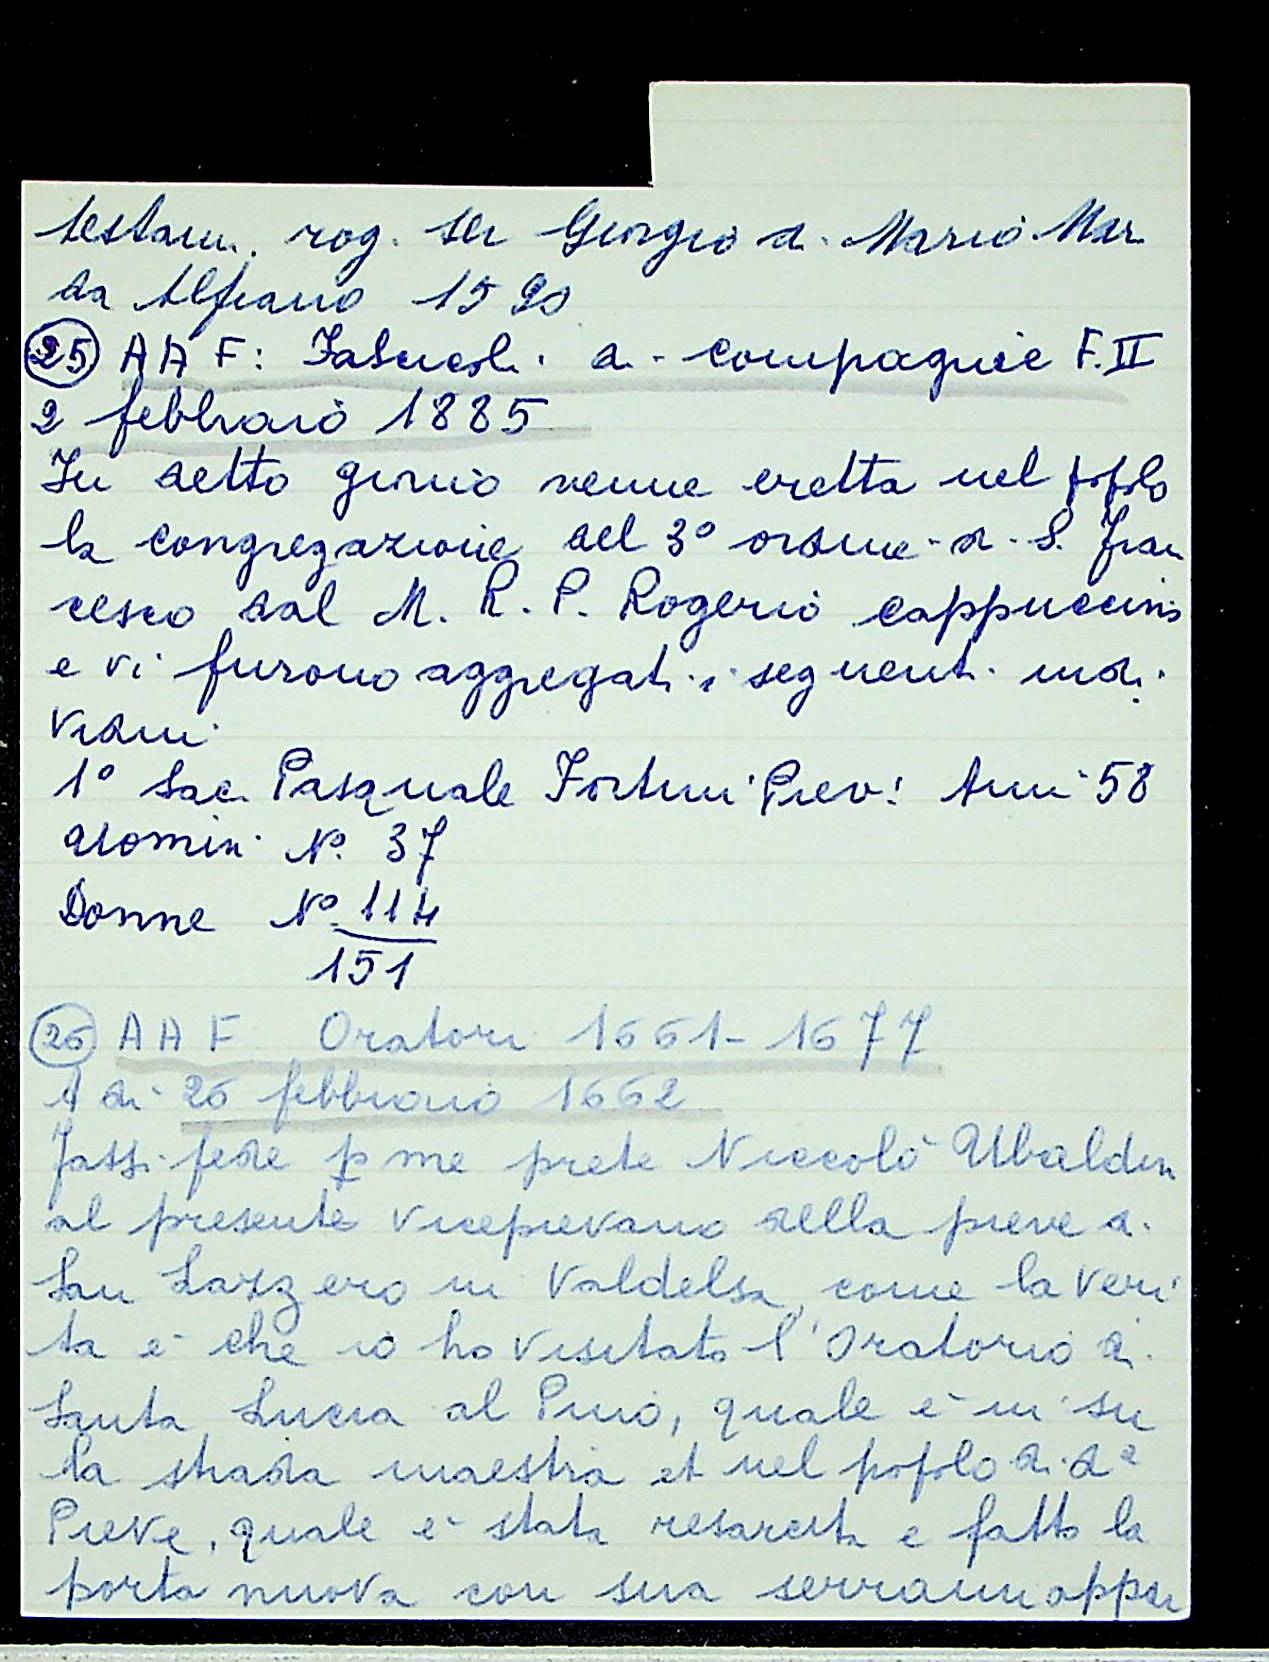 testam. rog. ser Giorgio di Mario Mar
da Alfiano 1590
25 AAF: Fascicoli di compagnie F. II
2 febbraio 1885
In detto giorno venne eretta nel popolo
la congregazione del 3° ordine di S. Fran
cesco dal M. R. P. Rogerio cappuccino
e vi furono aggregati i seguenti indi
vidui
1° Sac. Pasquale Fortini Piev: Anni 58
Uomini N°. 37
Donne N° 114
151
26 AAF Oratori 1661-1677
A di 26 febbraio 1662
Fassi fede p me prete Niccolò Ubaldin
al presente vicepievano della pieve di
San Lazzero in Valdelsa, come la veri
tà è che io ho visitato l'Oratorio di
Santa Lucia al Pino, quale è in su
la strada maestra et nel popolo di da
Pieve, quale è stata resarcita e fatto la
porta nuova con sua serrami appar